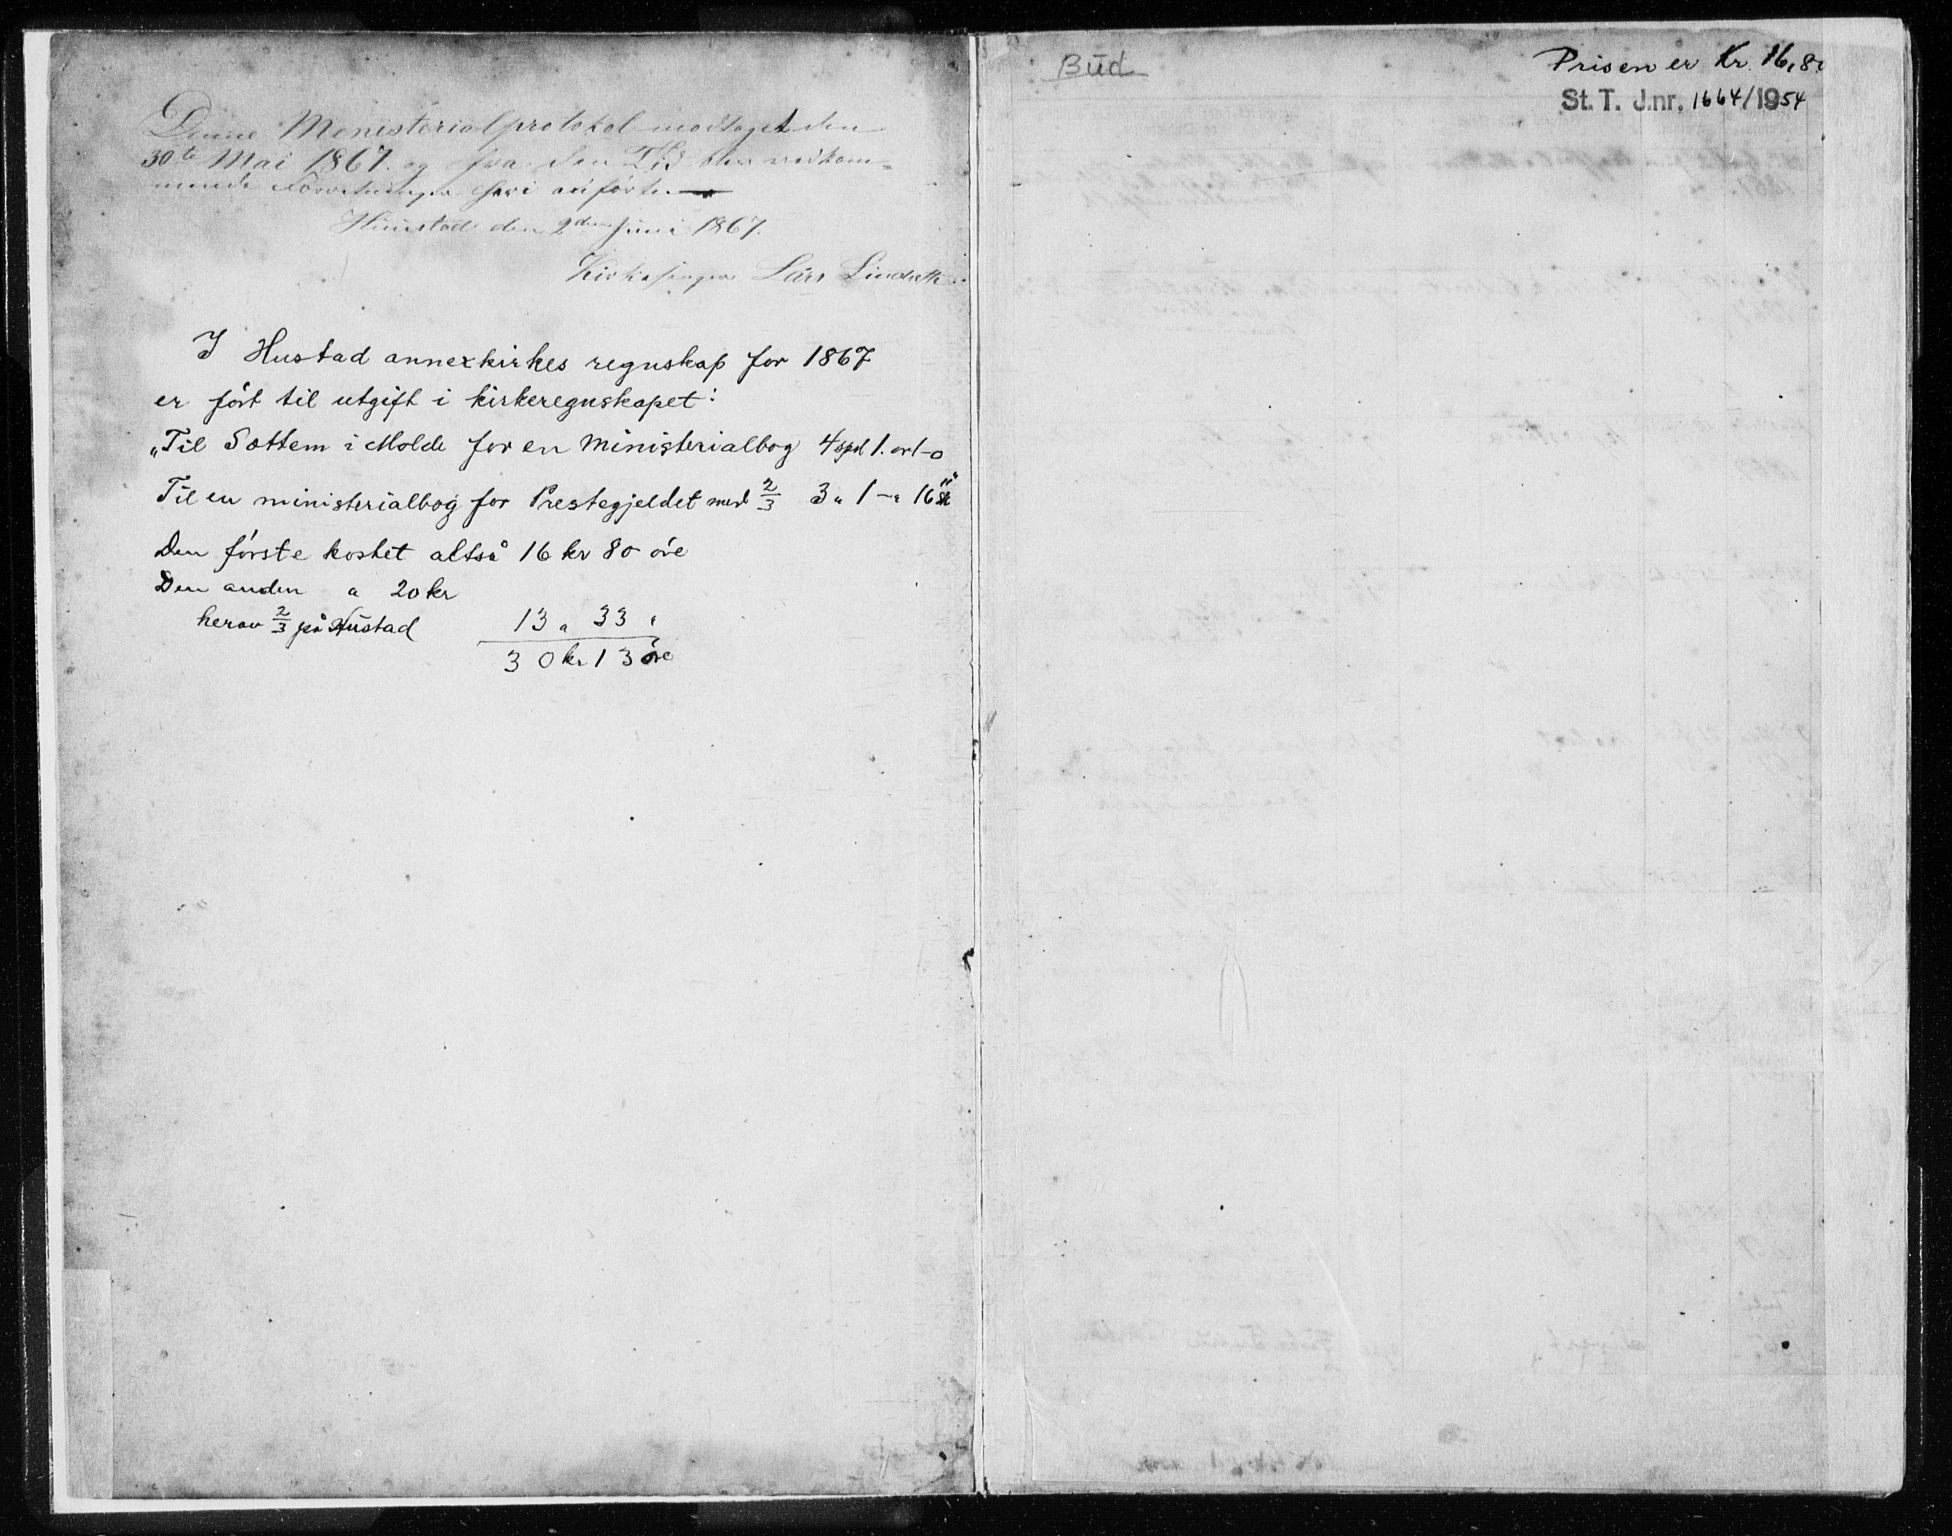 Denne Ministerialprotokol modtaget den
30te Mai 1867. og fra den Tid blev vedkom-
mende Forretninger heri anførte.
Hustad den 2den Juni 1867.
Kirkesanger Lars
I Hustad annexkirkes regnskap for 1867
er ført til utgift i kirkeregnskapet:
„Til Sættem i Molde for en ministerialbog 4 spd 1. ort - 0
Til en ministerialbog for Prestegjeldet med 2/3 3 " 1 - " 16 sk"
Den første kostet altså 16 kr 80 øre
Den anden a 20 kr
herav 2/3 på Hustad 13 " 33 "
30 kr 13 øre
Bud
Prisen er Kr. 16,80
St. T. J.nr. 1664/1954